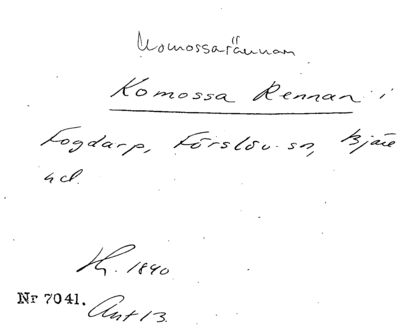 Komossarännan
Komossa Rennan i
Fogdarp, Förslöv sn, Bjäre
hd.
Kr. 1840
Nr 7041.
Ant 13.